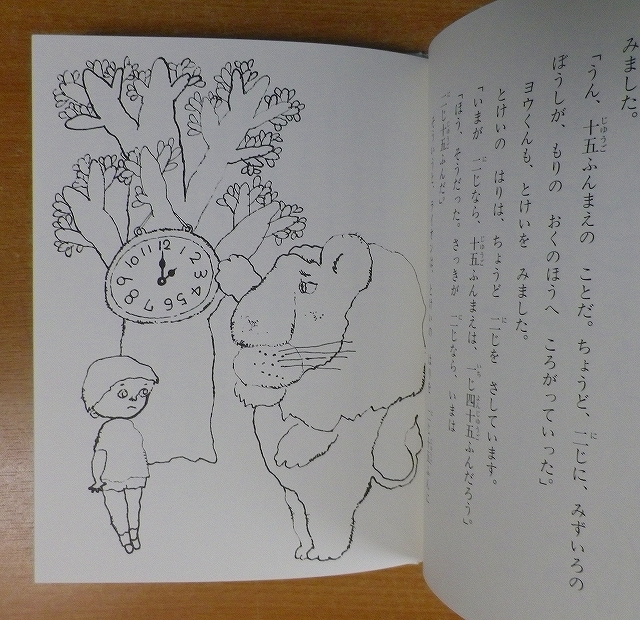 みました。
「うん、十五ふんまえの ことだ。ちょうど、二じに、みずいろの
ぼうしが、もりの おくのほうへ ころがっていった。」
ヨウくんも、とけいを みました。
とけいの はりは、ちょうど 二じを さしています。
「いまが 二じなら、十五ふんまえは、一じ四十五ふんだろう。」
「ほう、そうだった。さっきが 二じなら、いまは
二じ十五ふんだ。」
12
1
2
3
4
5
6
7
8
9
10
11